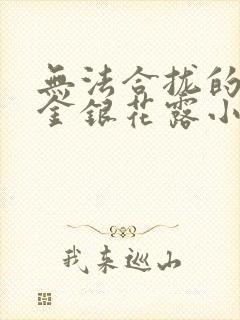 無法合拢的
金銀花露小
我来巡山